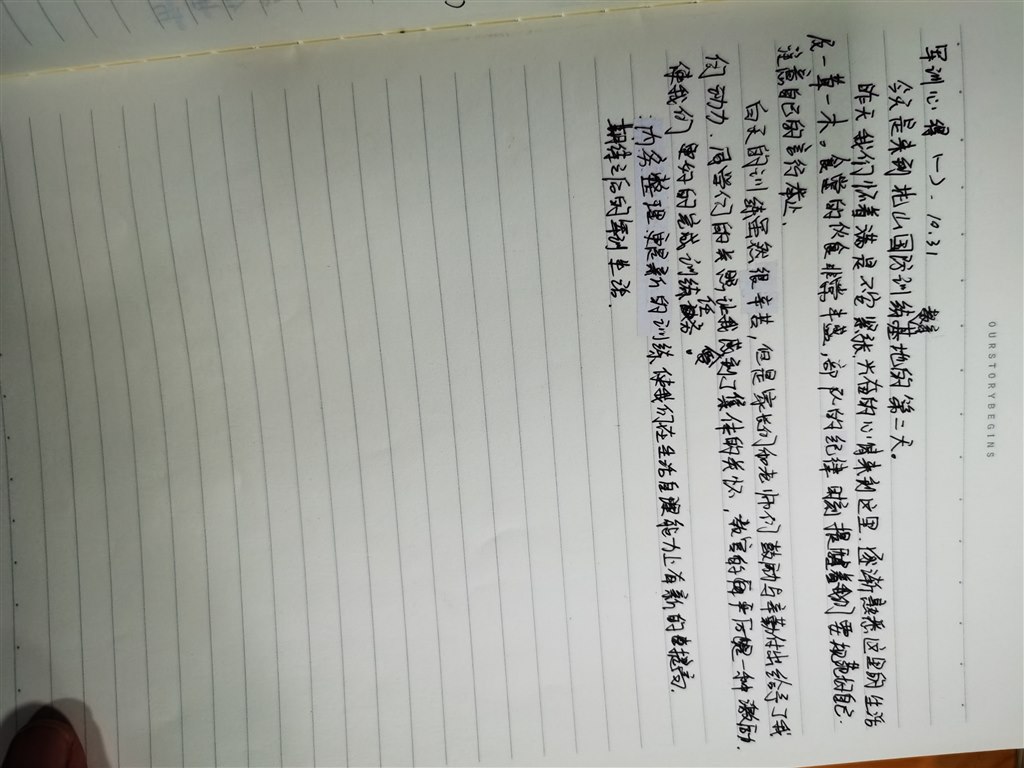 OURSTORYBEGINS
军训心得(一). 10.31
今天是来到扎山国防训练基地的第二天。
昨天我们怀着满是不安紧张兴奋的心情来到这里.逐渐熟悉这里的生活
及一草一木。食堂的伙食非常丰盛,部队的纪律时刻提醒着我们要规范好自己
注意自己的言行举止.
白天的训练虽然很辛苦,但是家长们和老师们鼓励与辛勤付出给予了我
们动力.同学们的关照让我感到了集体的关怀,教官的严厉是一种激励.
使我们更好的完成训练任务。
内务整理更是新的训练,使我们在生活自理能力上有新的提高.
期待之后的军训生活.